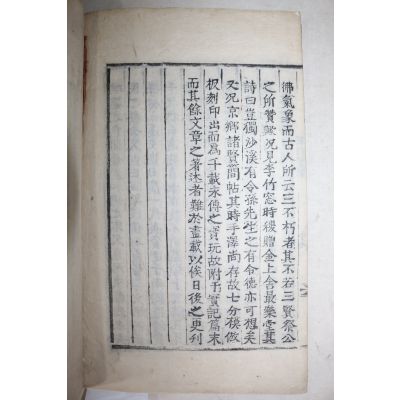 彿氣象而古人所云三不朽者其不若三賢祭公
之所贊歟况見李竹窓時稷贈金上舍最樂堂其
詩曰豈獨沙溪有令孫先生之有令德亦可想矣
又况京鄕諸賢簡帖其時手澤尚存故七分模倣
板刻印出而爲千載永傳之寶玩故附于實記篇末
而其餘文章之著述者難於盡載以俟日後之更刊